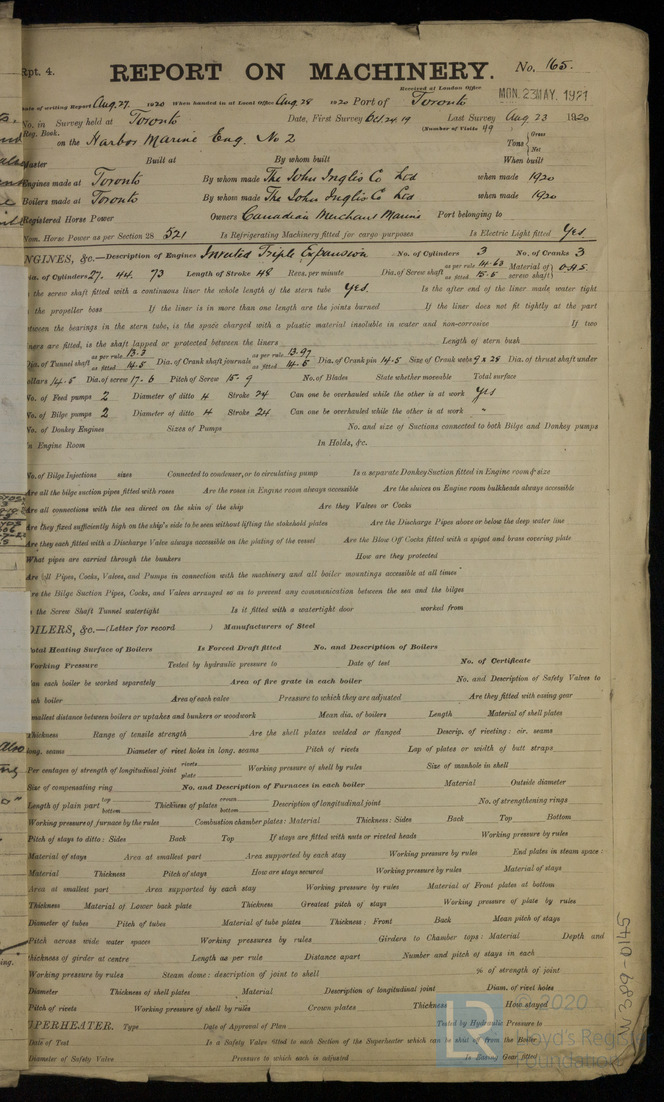 Rpt. 4.
REPORT ON MACHINERY. No. 165.
Received at London Office MON. 23 MAY. 1921
Date of writing Report Aug. 27. 1920 When handed in at Local Office Aug. 28 1920 Port of Toronto
No. in Survey held at Toronto Date, First Survey Oct 24. 19 Last Survey Aug 23 1920
Reg. Book. (Number of Visits 49 )
on the Harbor Marine Eng. No 2 Tons { Gross Net
Master Built at By whom built When built
Engines made at Toronto By whom made The John Inglis Co Ltd when made 1920
Boilers made at Toronto By whom made The John Inglis Co Ltd when made 1920
Registered Horse Power Owners Canadian Merchant Marine Port belonging to
Nom. Horse Power as per Section 28 521 Is Refrigerating Machinery fitted for cargo purposes Is Electric Light fitted Yes
ENGINES, &c.—Description of Engines Inverted Triple Expansion No. of Cylinders 3 No. of Cranks 3
Dia. of Cylinders 27. 44. 73 Length of Stroke 48 Revs. per minute Dia. of Screw shaft as per rule 14.63 as fitted 15.5 Material of screw shaft } O.H.S.
Is the screw shaft fitted with a continuous liner the whole length of the stern tube Yes. Is the after end of the liner made water tight
in the propeller boss If the liner is in more than one length are the joints burned If the liner does not fit tightly at the part
between the bearings in the stern tube, is the space charged with a plastic material insoluble in water and non-corrosive If two
liners are fitted, is the shaft lapped or protected between the liners Length of stern bush
Dia. of Tunnel shaft as per rule as fitted 14.5 Dia. of Crank shaft journals as per rule 13.97 as fitted 14.5 Dia. of Crank pin 14.5 Size of Crank webs 9 x 28 Dia. of thrust shaft under
collars 14.5 Dia. of screw 17.6 Pitch of Screw 15.9 No. of Blades State whether moveable Total surface
No. of Feed pumps 2 Diameter of ditto 4 Stroke 24 Can one be overhauled while the other is at work Yes
No. of Bilge pumps 2 Diameter of ditto 4 Stroke 24 Can one be overhauled while the other is at work "
No. of Donkey Engines Sizes of Pumps No. and size of Suctions connected to both Bilge and Donkey pumps
In Engine Room In Holds, &c.
No. of Bilge Injections sizes Connected to condenser, or to circulating pump Is a separate Donkey Suction fitted in Engine room & size
Are all the bilge suction pipes fitted with roses Are the roses in Engine room always accessible Are the sluices on Engine room bulkheads always accessible
Are all connections with the sea direct on the skin of the ship Are they Valves or Cocks
Are they fixed sufficiently high on the ship's side to be seen without lifting the stokehold plates Are the Discharge Pipes above or below the deep water line
Are they each fitted with a Discharge Valve always accessible on the plating of the vessel Are the Blow Off Cocks fitted with a spigot and brass covering plate
What pipes are carried through the bunkers How are they protected
Are all Pipes, Cocks, Valves, and Pumps in connection with the machinery and all boiler mountings accessible at all times
Are the Bilge Suction Pipes, Cocks, and Valves arranged so as to prevent any communication between the sea and the bilges
Is the Screw Shaft Tunnel watertight Is it fitted with a watertight door worked from
BOILERS, &c.—(Letter for record ) Manufacturers of Steel
Total Heating Surface of Boilers Is Forced Draft fitted No. and Description of Boilers
Working Pressure Tested by hydraulic pressure to Date of test No. of Certificate
Can each boiler be worked separately Area of fire grate in each boiler No. and Description of Safety Valves to
each boiler Area of each valve Pressure to which they are adjusted Are they fitted with easing gear
Smallest distance between boilers or uptakes and bunkers or woodwork Mean dia. of boilers Length Material of shell plates
Thickness Range of tensile strength Are the shell plates welded or flanged Descrip. of riveting: cir. seams
long. seams Diameter of rivet holes in long. seams Pitch of rivets Lap of plates or width of butt straps
Per centages of strength of longitudinal joint rivets plate Working pressure of shell by rules Size of manhole in shell
Size of compensating ring No. and Description of Furnaces in each boiler Material Outside diameter
Length of plain part top bottom Thickness of plates crown bottom Description of longitudinal joint No. of strengthening rings
Working pressure of furnace by the rules Combustion chamber plates: Material Thickness: Sides Back Top Bottom
Pitch of stays to ditto: Sides Back Top If stays are fitted with nuts or riveted heads Working pressure by rules
Material of stays Area at smallest part Area supported by each stay Working pressure by rules End plates in steam space:
Material Thickness Pitch of stays How are stays secured Working pressure by rules Material of stays
Area at smallest part Area supported by each stay Working pressure by rules Material of Front plates at bottom
Thickness Material of Lower back plate Thickness Greatest pitch of stays Working pressure of plate by rules
Diameter of tubes Pitch of tubes Material of tube plates Thickness: Front Back Mean pitch of stays
Pitch across wide water spaces Working pressures by rules Girders to Chamber tops: Material Depth and
thickness of girder at centre Length as per rule Distance apart Number and pitch of stays in each
Working pressure by rules Steam dome: description of joint to shell % of strength of joint
Diameter Thickness of shell plates Material Description of longitudinal joint Diam. of rivet holes
Pitch of rivets Working pressure of shell by rules Crown plates Thickness How stayed
SUPERHEATER. Type Date of Approval of Plan Tested by Hydraulic Pressure to
Date of Test Is a Safety Valve fitted to each Section of the Superheater which can be shut off from the Boiler
Diameter of Safety Valve Pressure to which each is adjusted Is Easing Gear fitted
W309-0145
LR © 2020
Lloyd's Register
Foundation